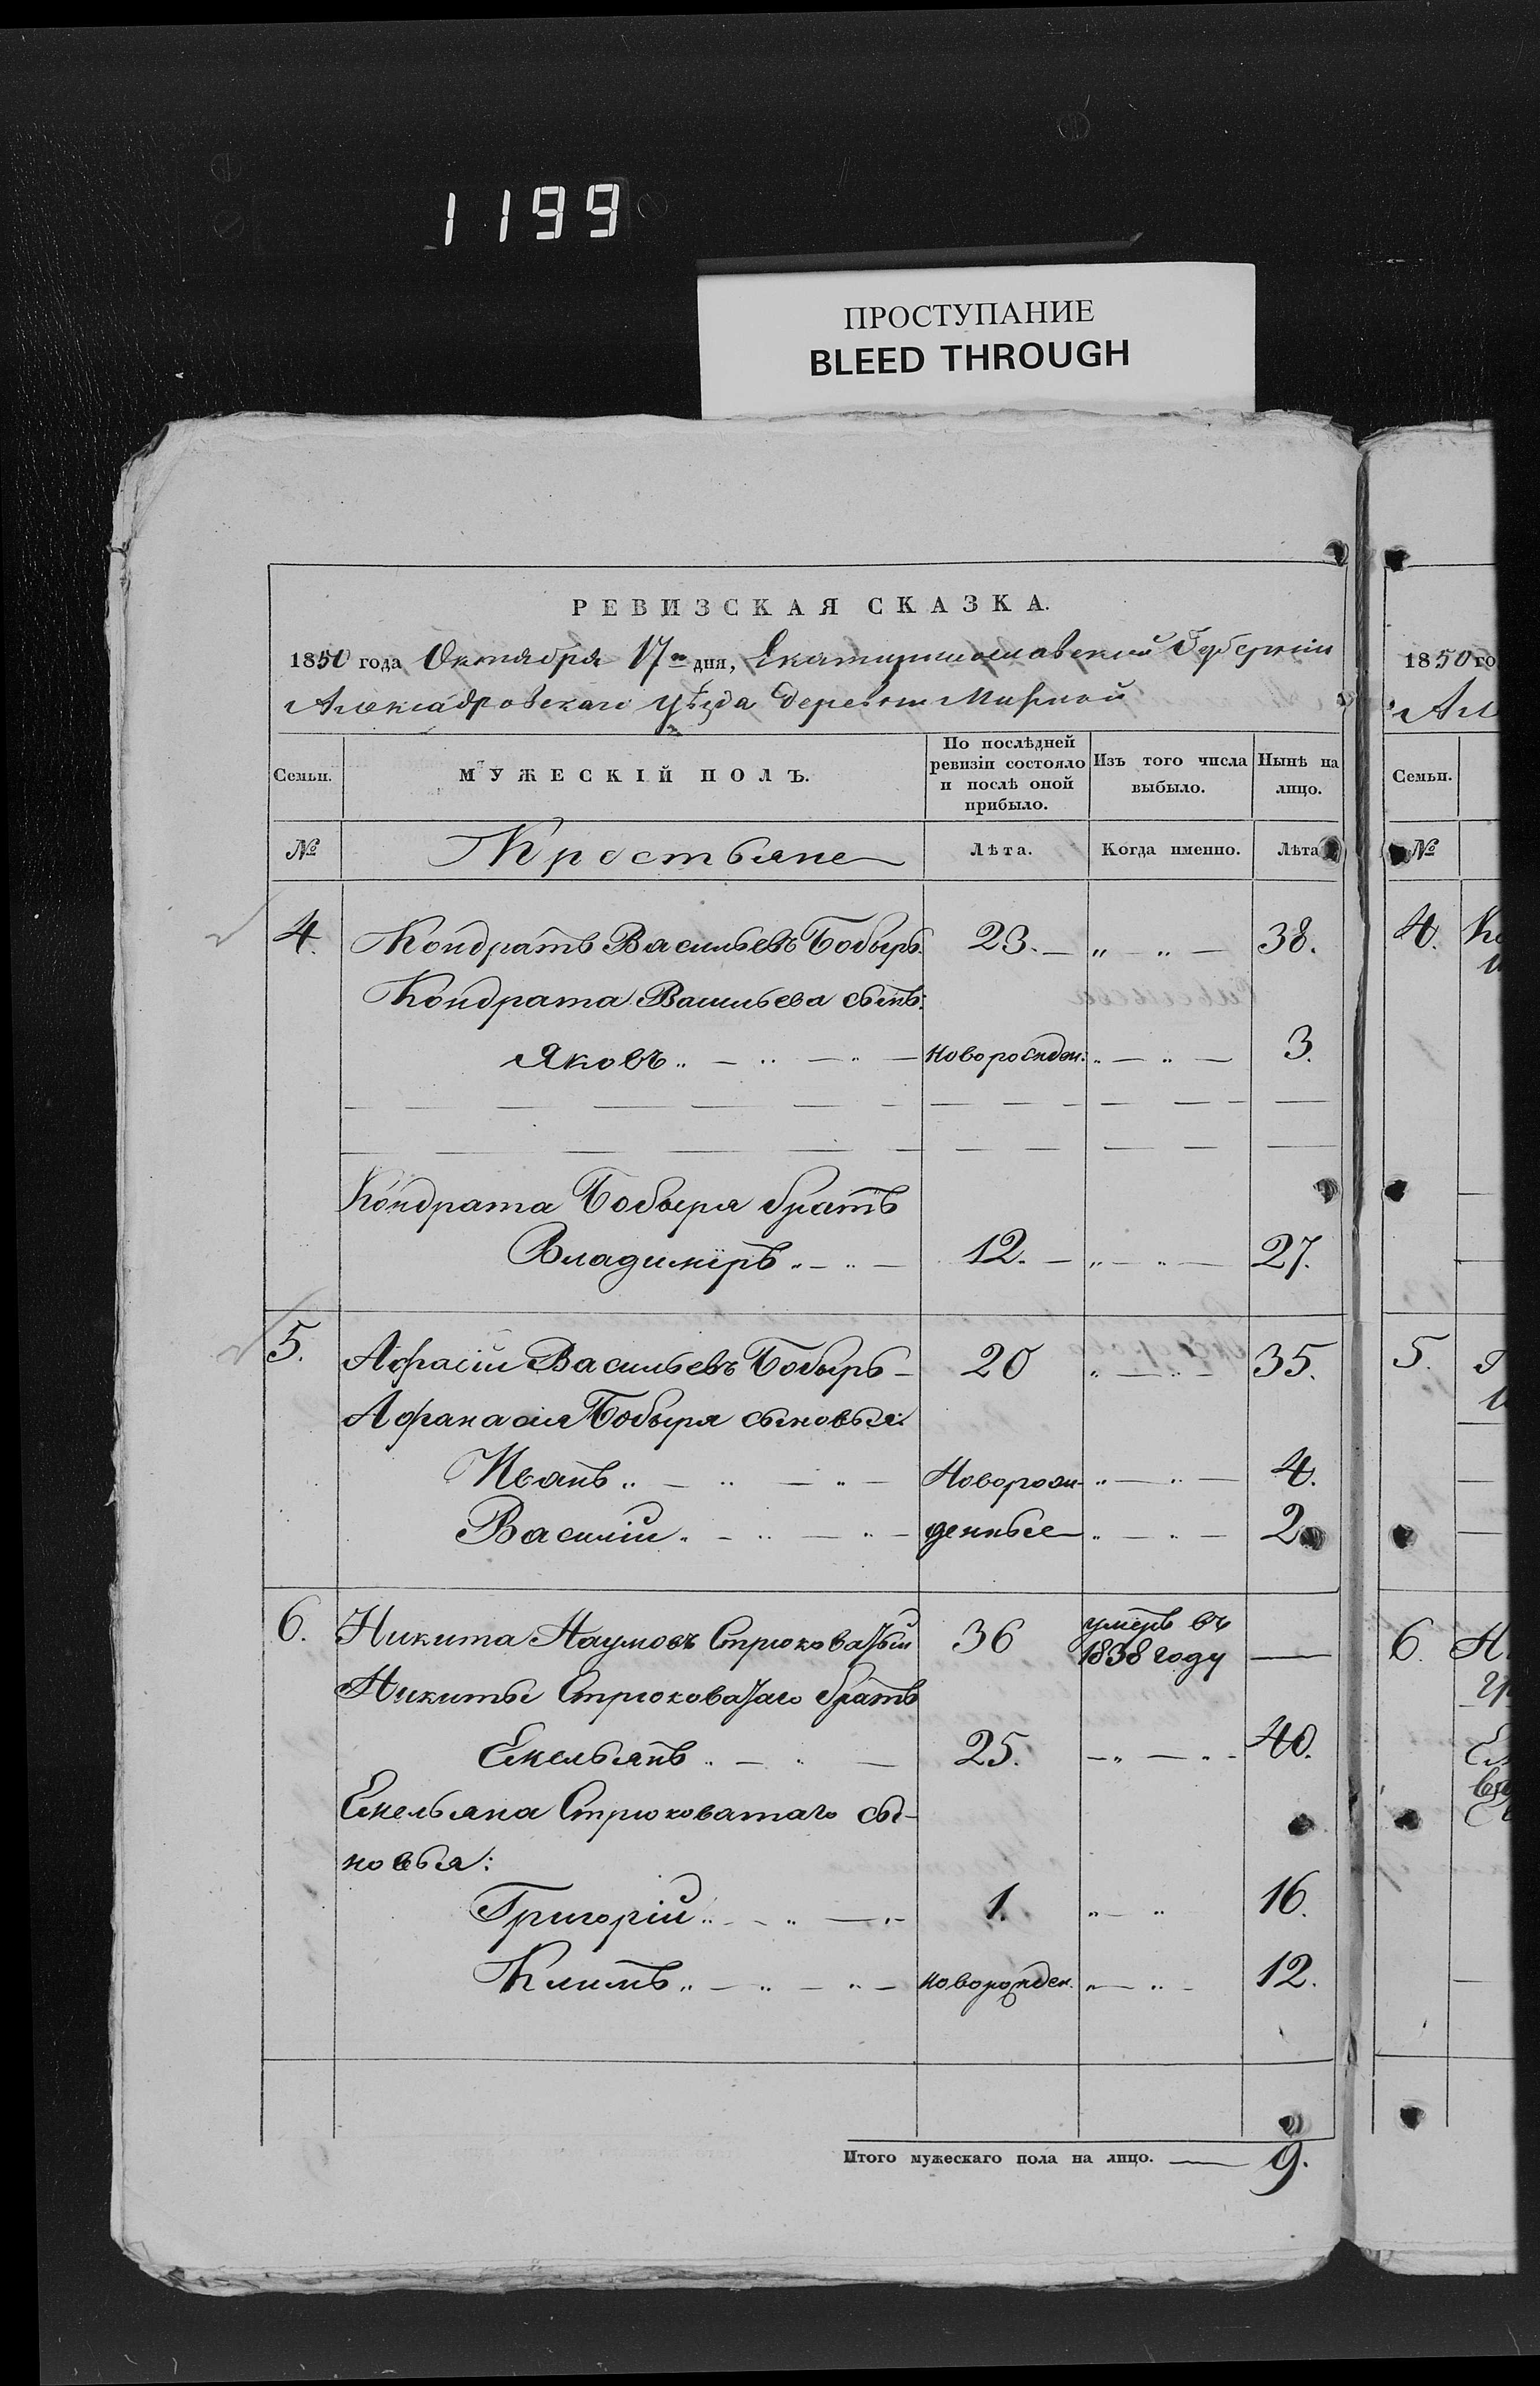 1199
ПРОСТУПАНИЕ
BLEED THROUGH
РЕВИЗСКАЯ СКАЗКА.
1850 года Октября 17го дня, Екатеринославской Губернии
Алексадровскаго уѣзда деревни Мирной
Семьи. МУЖЕСКІЙ ПОЛЪ. По послѣдней ревизіи состояло и послѣ оной прибыло. Изъ того числа выбыло. Нынѣ на лицо.
№ Крестьяне Лѣта. Когда именно. Лѣта
4. Кондратъ Васильевъ Бобырь. 23. — „ — „ — 38.
Кондрата Васильева сынъ:
Яковъ „ — „ — „ — новорожден: „ — „ — 3.
Кондрата Бобыря братъ
Владиміръ „ — „ — 12. — „ — „ — 27.
5. Афасій Васильевъ Бобырь — 20 „ — „ — 35.
Афанасія Бобыря сыновья:
Иванъ „ — „ — „ — Новорож- „ — „ — 4.
Василій „ — „ — „ — денные „ — „ — 2
6. Никита Наумовъ Стрюковатый 36 умеръ въ 1838 году —
Никиты Стрюковатаго братъ
Емельянъ „ — „ — 25. — „ — „ - 40.
Емельяна Стрюковатаго сы-
новья:
Григорій „ — „ — „ - 1. „ — „ 16.
Климъ „ — „ — „ — новорожден. „ — „ - 12.
Итого мужескаго пола на лицо. — 9.
1850 го
Ал
Семьи.
№
4.
5.
6.